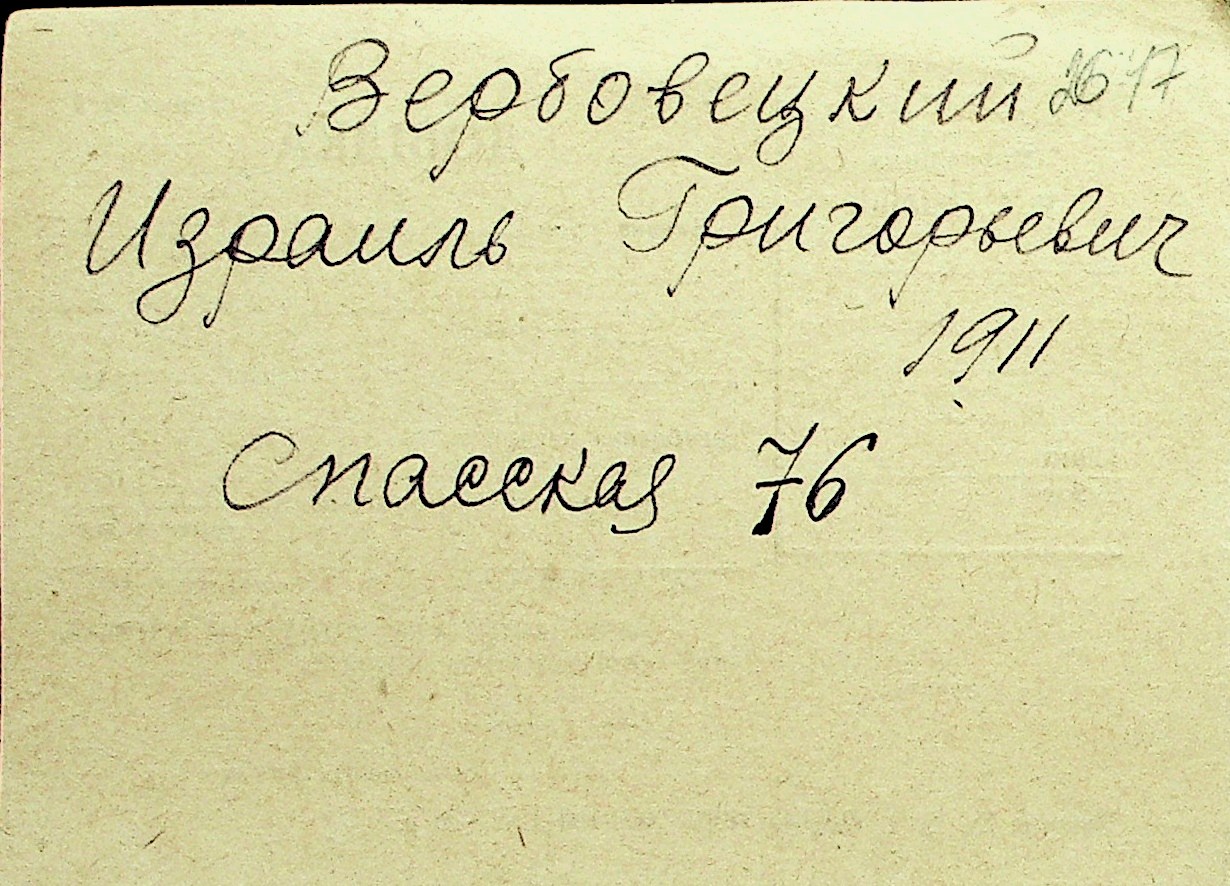 Вербовецкий 2617
Израиль Григорьевич
1911
Спасская 76